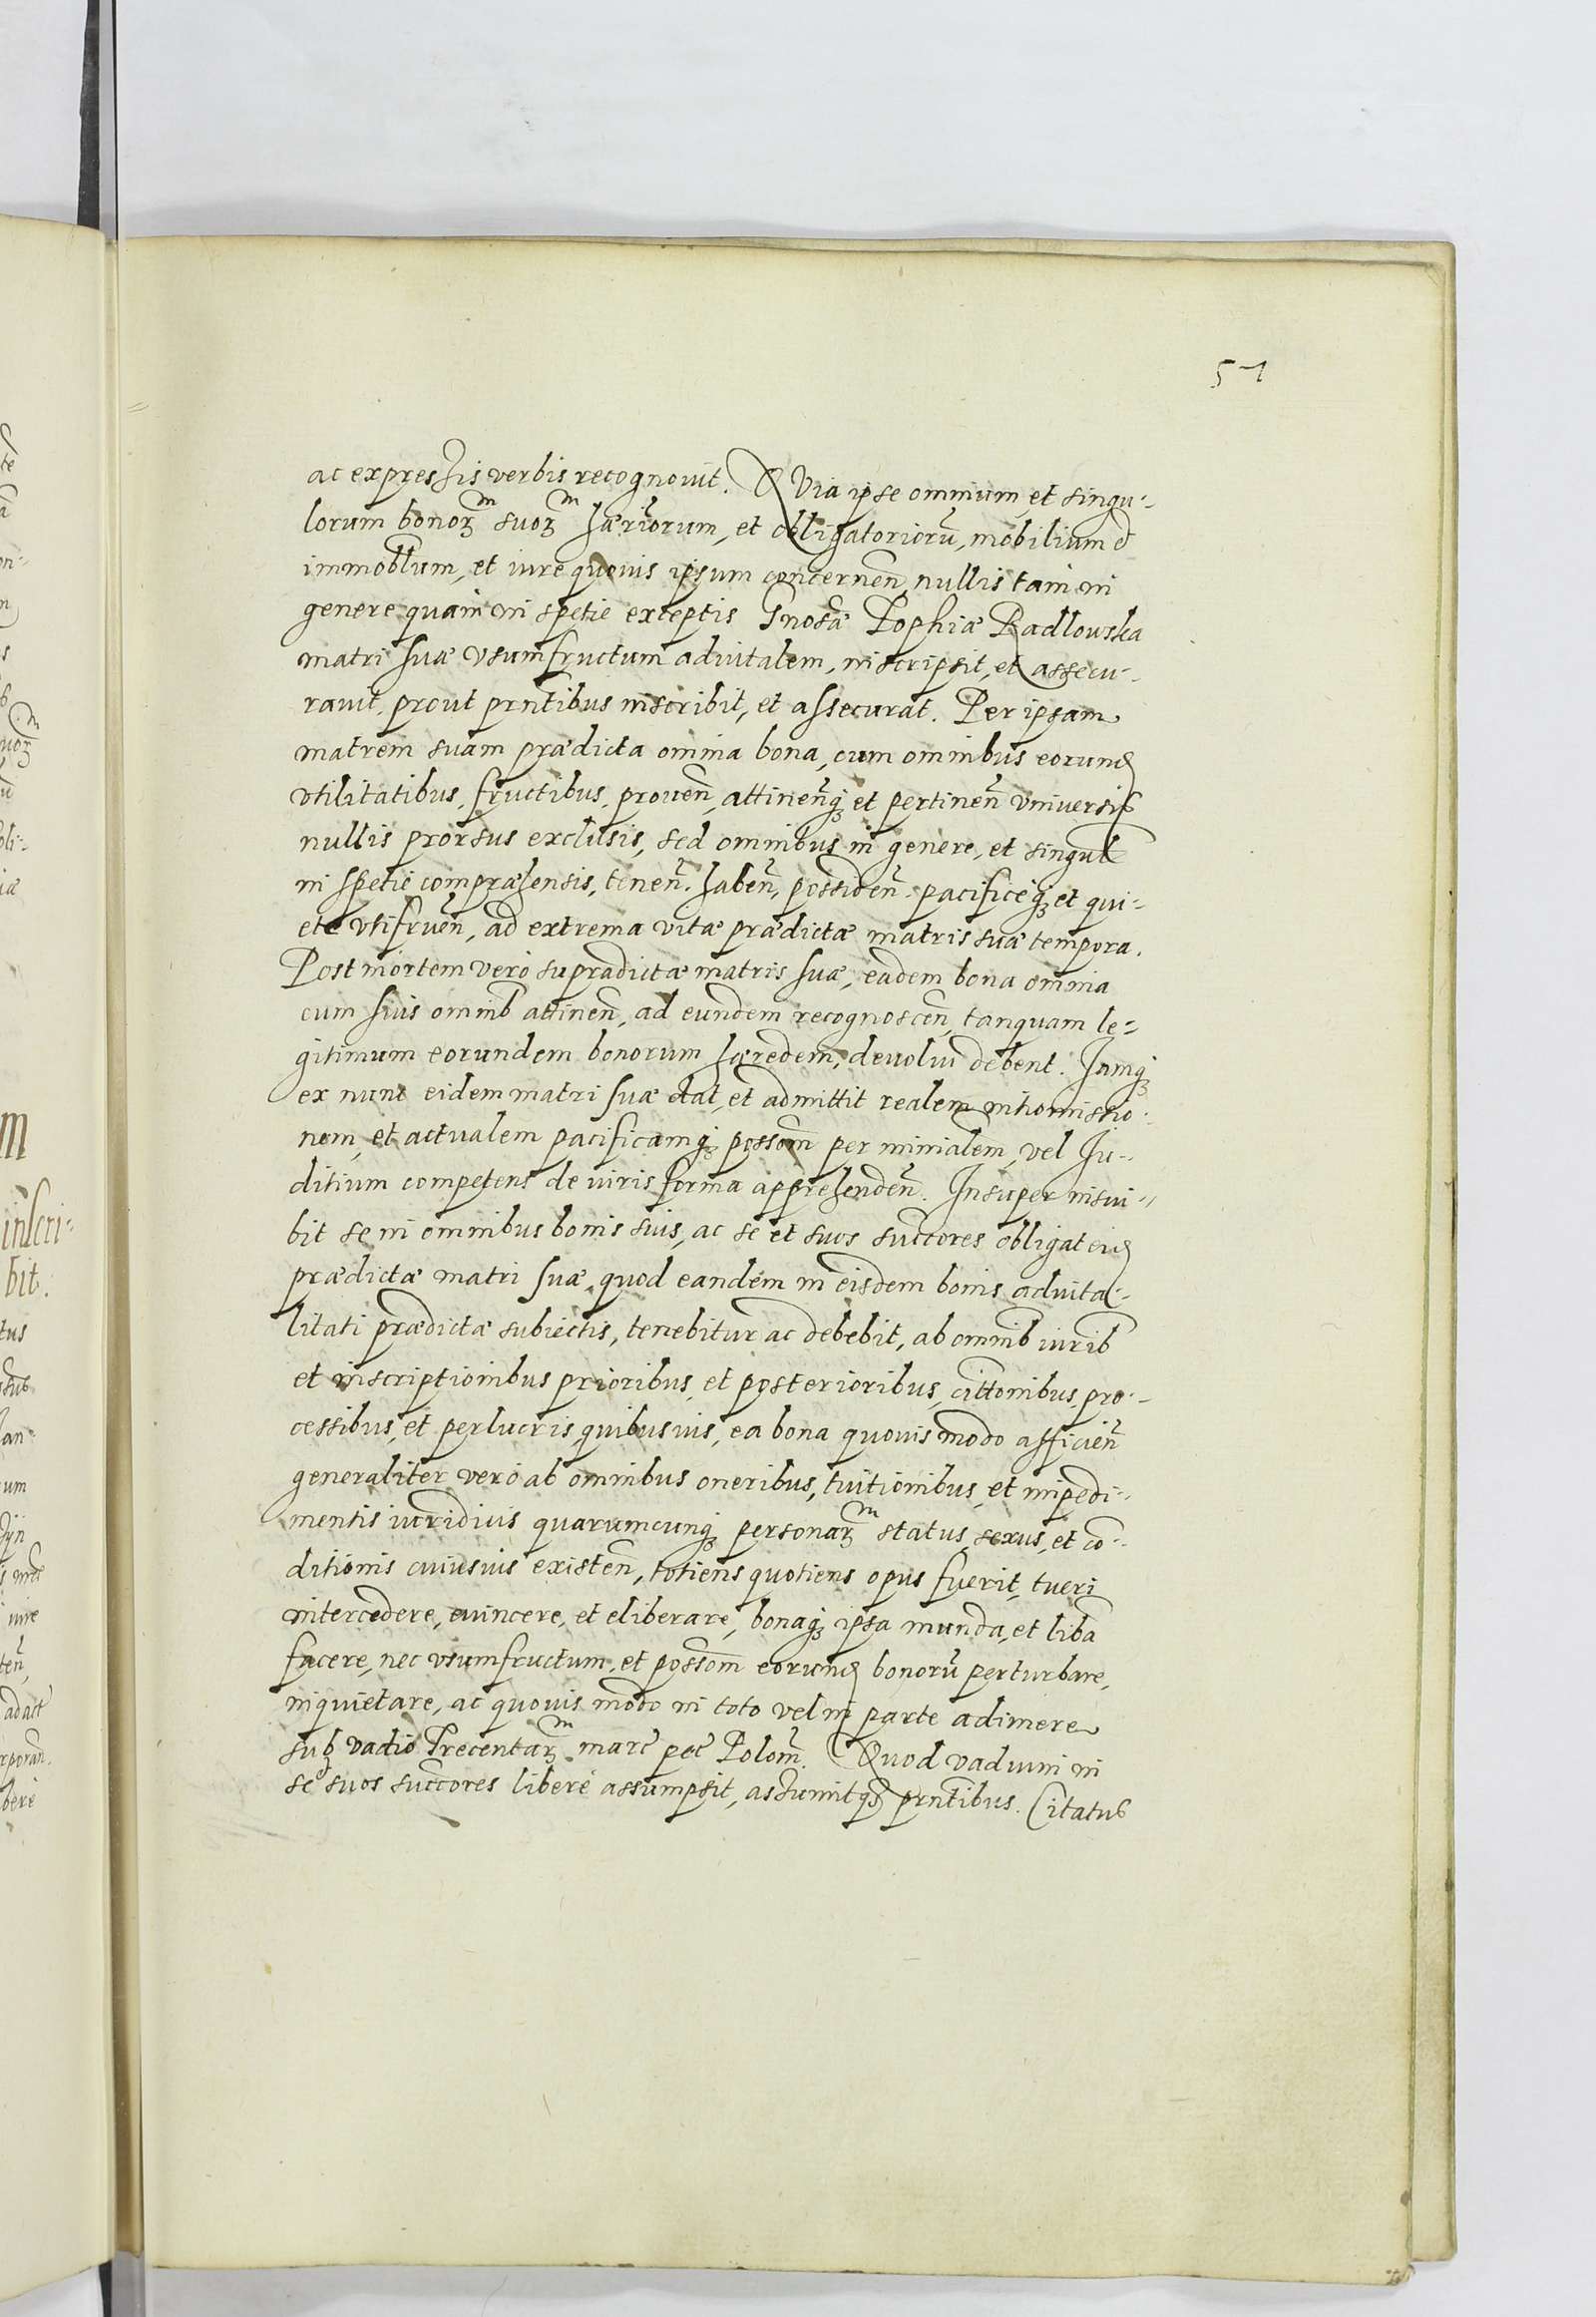 51
ac expressis verbis recognovit. QVia ipse omnium, et singu-
lorum bonorum suorum hæriorum, et obligatoriorũ, mobilium et
immoblium, et iure quovis ipsum concernen̄, nullis tam in
genere quam in spetie exceptis Gnosæ Sophiæ Radlowska
matri suæ vsumfructum aduitalem, inscripsit, et assecu-
rauit, prout prntibus inscribit, et assecurat. Per ipsam
matrem suam prædicta omnia bona, cum omnibus eorund
vtilitatibus, fructibus, prouen̄, attinen̄q₃ et pertinen̄ vniuersis
nullis prorsus exclusis, sed omnibus in genere, et singul
in spetie compræhensis, tenen̄. haben̄, possiden̄. pacificeq₃ et qui-
ete vtifruen̄, ad extrema vitæ prædictæ matris suæ tempora.
Post mortem vero supradictæ matris suæ, eadem bona omnia
cum suis omnib attinen̄, ad eundem recognoscen̄, tanquam le-
gitimum eorundem bonorum hæredem, devolui debent. Iamq₃
ex nunc eidem matri suæ dat, et admittit realem intromissio-
nem, et actualem pacificamq₃ possom̄ per minialem, vel Iu-
ditium competens de iuris forma apprehenden̄. Insuper inscri-
bit se in omnibus bonis suis, ac se et suos succores obligat eid
prædictæ matri suæ, quod eandem in eisdem bonis aduita-
litati prædictæ subiectis, tenebitur ac debebit, ab omnib iurib
et inscriptionibus prioribus, et posterioribus, cittonibus, pro-
cessibus, et perlucris quibusuis, ea bona quouis modo afficien̄
generaliter vero ab omnibus oneribus, tuitionibus, et impedi-
mentis iuridicis quarumcunq₃ personarum status, sexus, et co-
ditionis cuiusuis existen̄, totiens quotiens opus fuerit, tueri
intercedere, euincere, et eliberare, bonaq₃ ipsa munda, et liba
facere, nec vsumfructum, et possom̄ eorund bonorũ perturbare,
inquietare, ac quouis modo in toto vel in parte adimere
sub vadio Trecentarum marc pec Polom̄. Quod vadium in
se suos succores libere assumpsit, assumitq₃ prntibus. Citatus